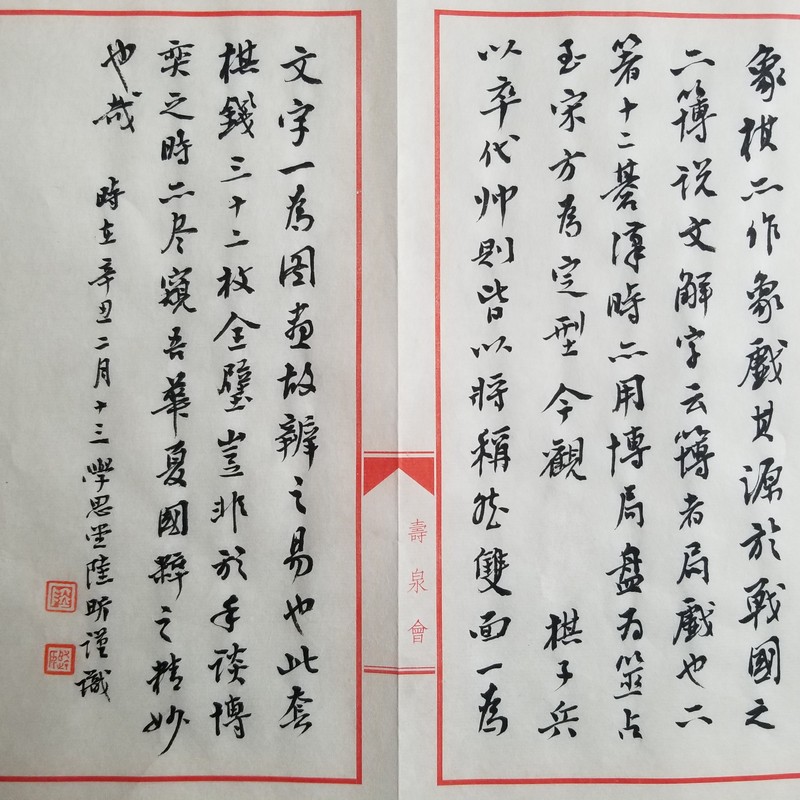 象棋亦作象戲其源於戰國之
六簙说文解字云簙者局戲也六
箸十二棊漢時亦用博局盤为筮占
至宋方為定型今觀 棋子兵
以卒代帅則皆以將稱然雙面一為
壽泉會
文字一為圖畫故辨之易也此套
棋錢三十二枚全璧豈非於手談博
奕之時亦尽窺吾華夏國粹之精妙
也哉 時在辛丑二月十三學思堂陸昕谨識